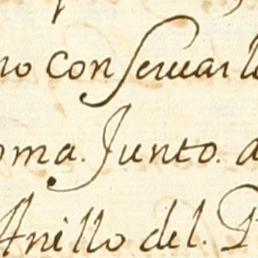 no conservar l
oma. Junto. a
Anillo del. P